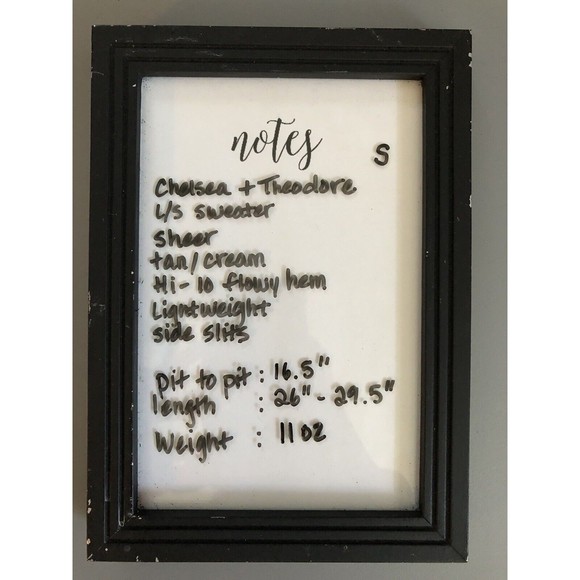 notes
S
Chelsea + Theodore
L/S sweater
sheer
tan/cream
Hi-lo flowy hem
Lightweight
side slits
pit to pit : 16.5"
length : 26" - 29.5"
Weight : 11oz